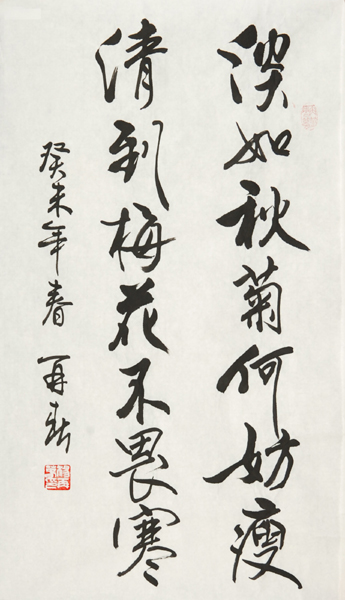 淡如秋菊何妨瘦
清到梅花不畏寒
癸未年春 再新